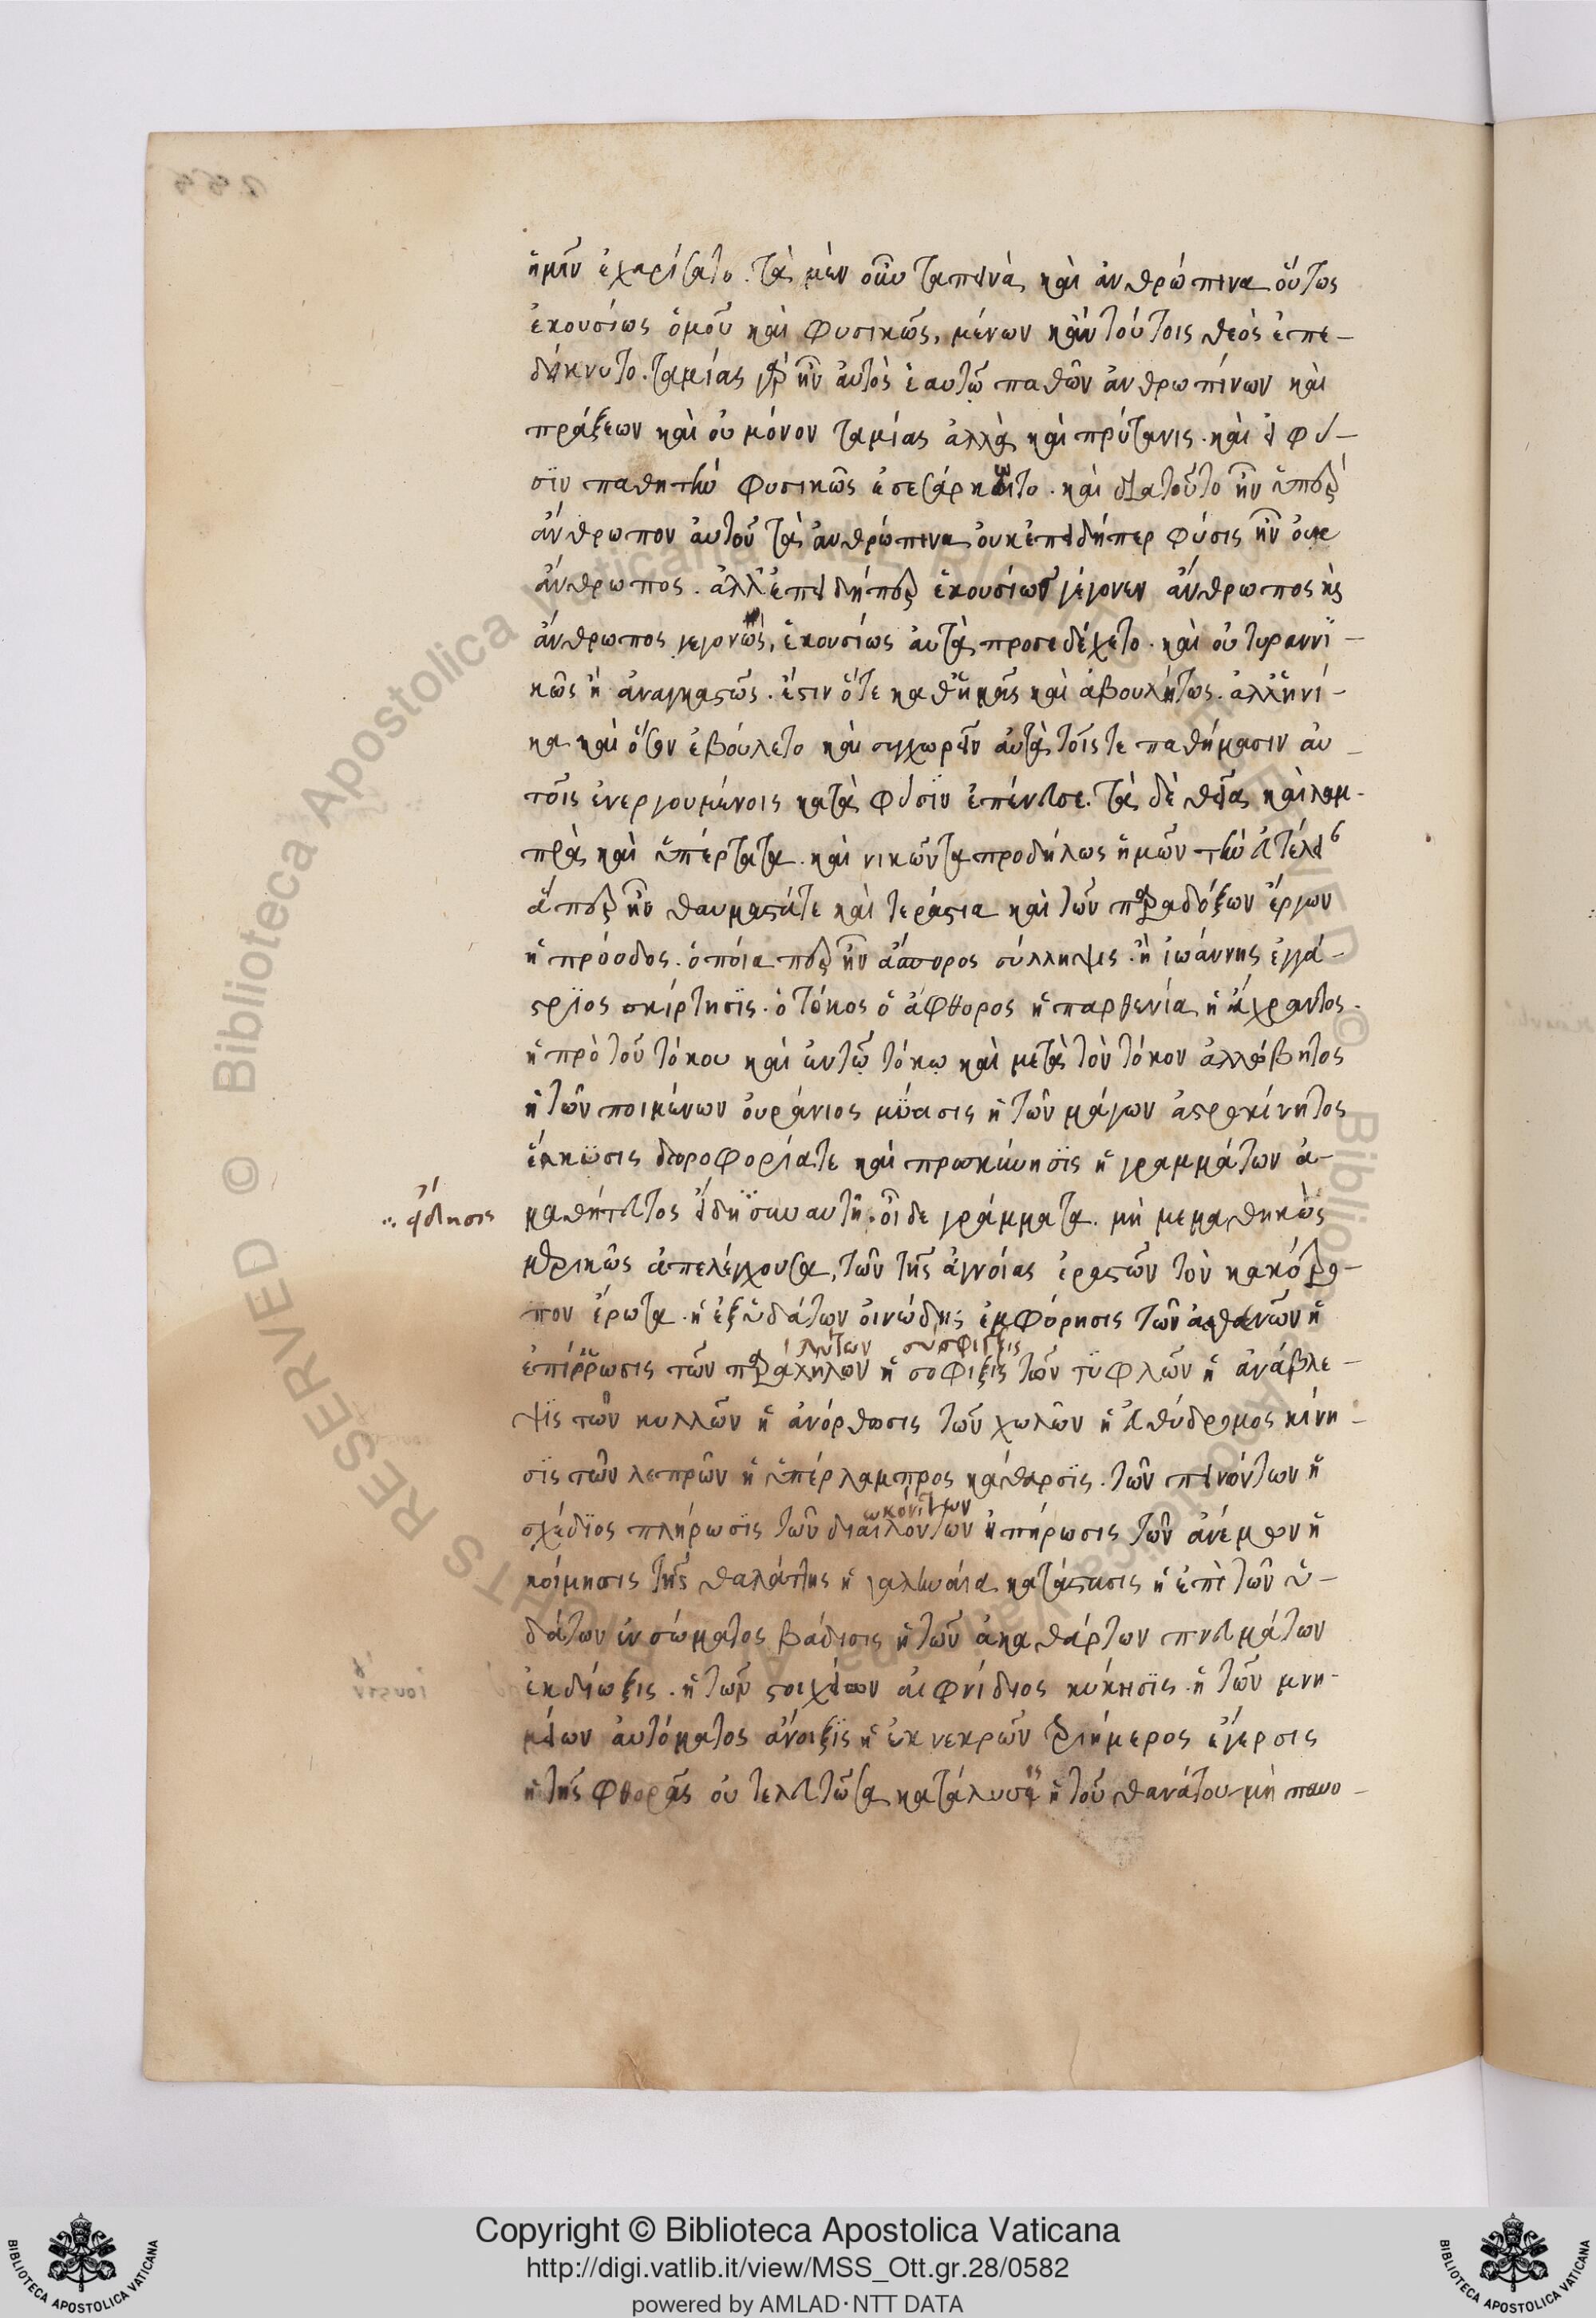 ἡμῖν ἐχαρίσατο. τὰ μὲν οὖν ταπεινὰ καὶ ἀνθρώπινα οὕτως
ἑκουσίως ὁμοῦ καὶ φυσικῶς, μένων κἀν τούτοις θεὸς ἐπε-
δείκνυτο. ταμίας γὰρ ἦν αὐτὸς ἑαυτῷ παθῶν ἀνθρωπίνων καὶ
πράξεων καὶ οὐ μόνον ταμίας ἀλλὰ καὶ πρύτανις. καὶ εἰ φύ-
σιν παθητὴν φυσικῶς ἐσεσάρκωτο. καὶ διὰ τοῦτο ἦν ὑπὲρ
ἄνθρωπον αὐτοῦ τὰ ἀνθρώπινα οὐκ ἐπειδήπερ φύσις ἦν οὐκ
ἄνθρωπος. ἀλλ' ἐπειδήπερ ἑκουσίως γέγονεν ἄνθρωπος κς
ἄνθρωπος γεγονὼς, ἑκουσίως αὐτὰ προσεδέχετο. καὶ οὐ τυραννϊ-
κῶς ἢ ἀναγκαστῶς. ἔστιν ὅτε καθ' ἡμᾶς καὶ ἀβουλήτως. ἀλλ' ἡνί-
κα καὶ ὅσον ἐβούλετο καὶ συγχωρεῖν αὐτὰ τοῖς τε παθήμασιν αὐ-
τοῖς ἐνεργουμένοις κατὰ φύσϊν ἐπένευσε. τὰ δὲ θεῖα καὶ λαμ-
πρὰ καὶ ὑπέρτατα. καὶ νικῶντα προδήλως ἡμῶν τὴν εὐτέλειαν
ἅπερ ἦν θαυμαστά τε καὶ τεράστια καὶ τῶν παραδόξων ἔργων
ἡ πρόοδος. ὁποία περ ἦν ἡ ἄσπορος σύλληψις. ἡ ἰωάννης ἐγγά-
στρϊος σκίρτησϊς. ὁ τόκος ὁ ἄφθορος ἡ παρθενία ἡ ἄχραντος.
ἡ πρὸ τοῦ τόκου καὶ ἐν τῷ τόκῳ καὶ μετὰ τὸν τόκον ἀλλώβητος
ἡ τῶν ποιμένων οὐράνιος μύϊασις ἡ τῶν μάγων ἀστροκίνητος
ἕλκϋσις δωροφορία τε καὶ προσκύνησϊς ἡ γραμμάτων ἀ-
εἴδησις
μαθήτευτος εἴδησϊν αὐτὴ. οἶδε γράμματα. μὴ μεμαθηκὼς
ἀπελέγχουσα, τῶν τῆς ἀγνοίας ἐραστῶν τὸν κακότρο-
πον ἔρωτα. ἡ ἐξ ὑδάτων οἰνώδης ἐμφόρησις τῶν ἀσθενῶν ἡ
λύτων σύσφιγξις
ἐπίρρωσις τῶν παραλήλων ἡ σοφιξις τῶν τϋφλῶν ἡ ἀνάβλε-
ψϊς τῶν κυλλῶν ἡ ἀνόρθωσις τῶν χωλῶν ἡ εὐθύδρομος κίνη-
σϊς τῶν λεπρῶν ἡ ὑπέρλαμπρος κάθαρσϊς. τῶν πεινόντων ἡ
ωκόντων
σχέδϊος πλήρωσϊς τῶν διαιλοντων ἡ πήρωσις τῶν ἀνέμων ἡ
κοίμησις τῆς θαλάττης ἡ γαληναία κατάστασις ἡ ἐπὶ τῶν ὑ-
δάτων ἐν σώματος βάδισις ἡ τῶν ἀκαθάρτων πνευμάτων
ἐκδίωξις. ἡ τῶν στοιχείων αἰφνίδιος κύκησϊς. ἡ τῶν μνη-
μείων αὐτόματος ἄνοιξϊς ἡ ἐκ νεκρῶν τριήμερος ἔγερσις
ἡ τῆς φθορᾶς οὐ τελευτῶσα κατάλυσις ἡ τοῦ θανάτου μὴ παυο-
Copyright © Biblioteca Apostolica Vaticana
http://digi.vatlib.it/view/MSS_Ott.gr.28/0582
powered by AMLAD·NTT DATA